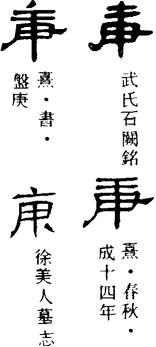 庚
武氏石闕銘
庚
熹·書·
盤庚
庚
熹·春秋·
成十四年
庚
徐美人墓志